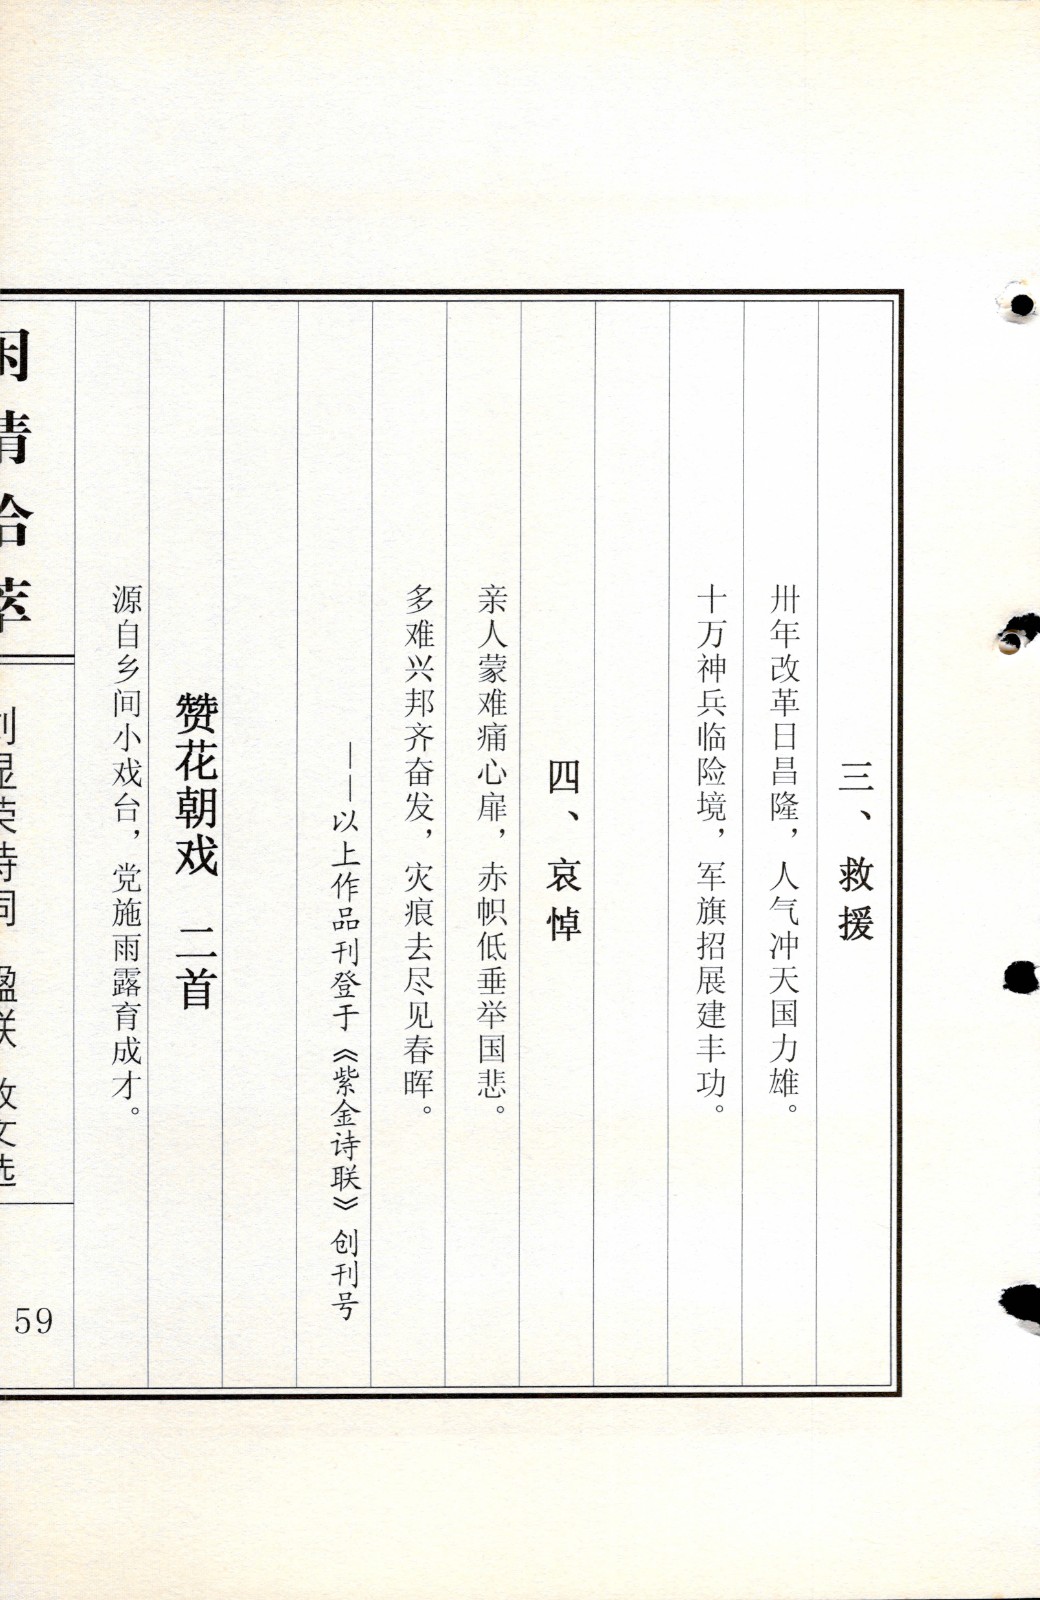 三、救援
卅年改革日昌隆，人气冲天国力雄。
十万神兵临险境，军旗招展建丰功。
四、哀悼
亲人蒙难痛心扉，赤帜低垂举国悲。
多难兴邦齐奋发，灾痕去尽见春晖。
——以上作品刊登于《紫金诗联》创刊号
赞花朝戏 二首
源自乡间小戏台，党施雨露育成才。
闲情拾萃
刘显荣诗词 楹联 散文选
59